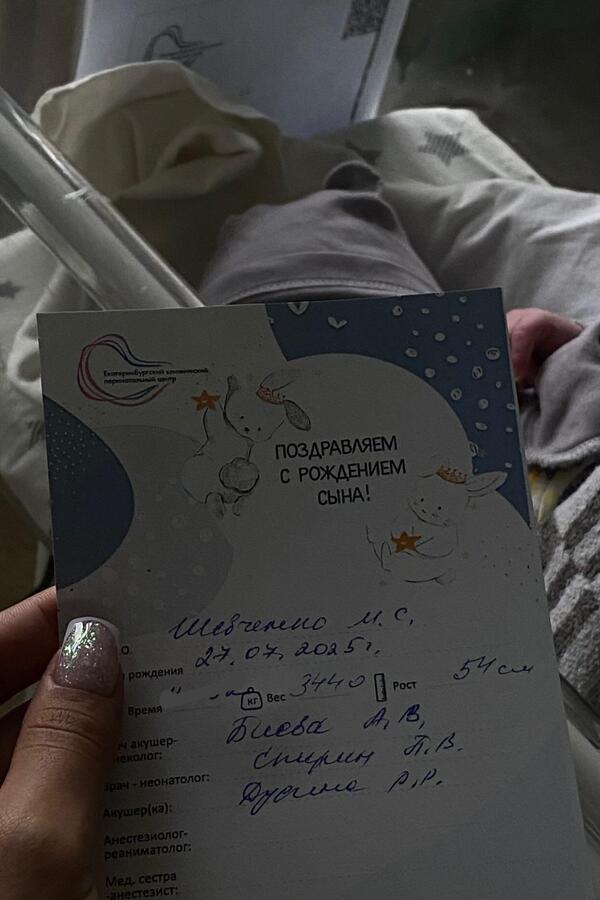 Екатеринбургский клинический
перинатальный центр
ПОЗДРАВЛЯЕМ
С РОЖДЕНИЕМ
СЫНА!
.О. Шевченко М. С.
рождения 27.07.2025г.
Время кг Вес 3440 Рост 54 см
ач акушер-
неколог: А.В.
врач - неонатолог: Спирин П.В.
Акушер(ка): Р.Р.
Анестезиолог-
реаниматолог:
Мед. сестра
-анестезист: